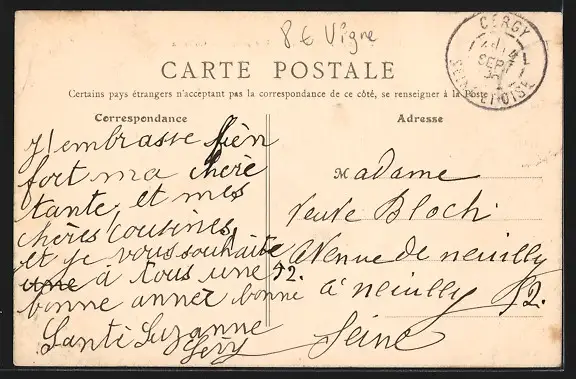 8€ Vigne
CERGY
SEPT
SEINE-ET-OISE
CARTE POSTALE
Certains pays étrangers n'acceptant pas la correspondance de ce côté, se renseigner à la Poste
Correspondance
Adresse
J'embrasse bien
fort ma chère
tante, et mes
chères cousines,
et je vous souhaite
une à tous une
bonne année bonne
Santé Suzanne
Madame
Veuve Bloch
Avenue de neuilly
92.
à neuilly 92.
Seine